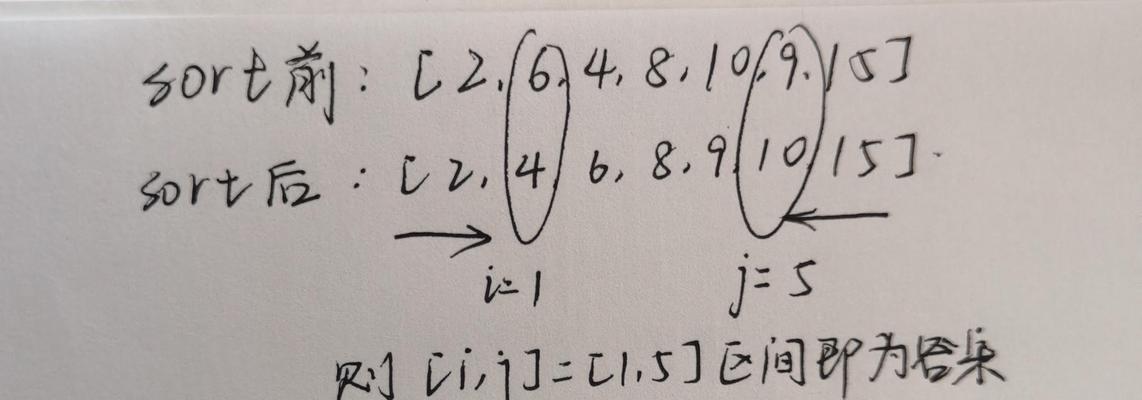 sort前：[2,6,4,8,10,9,15]
sort后：[2,4,6,8,9,10,15].
i=1 j=5
则[i,j]=[1,5]区间即为答案